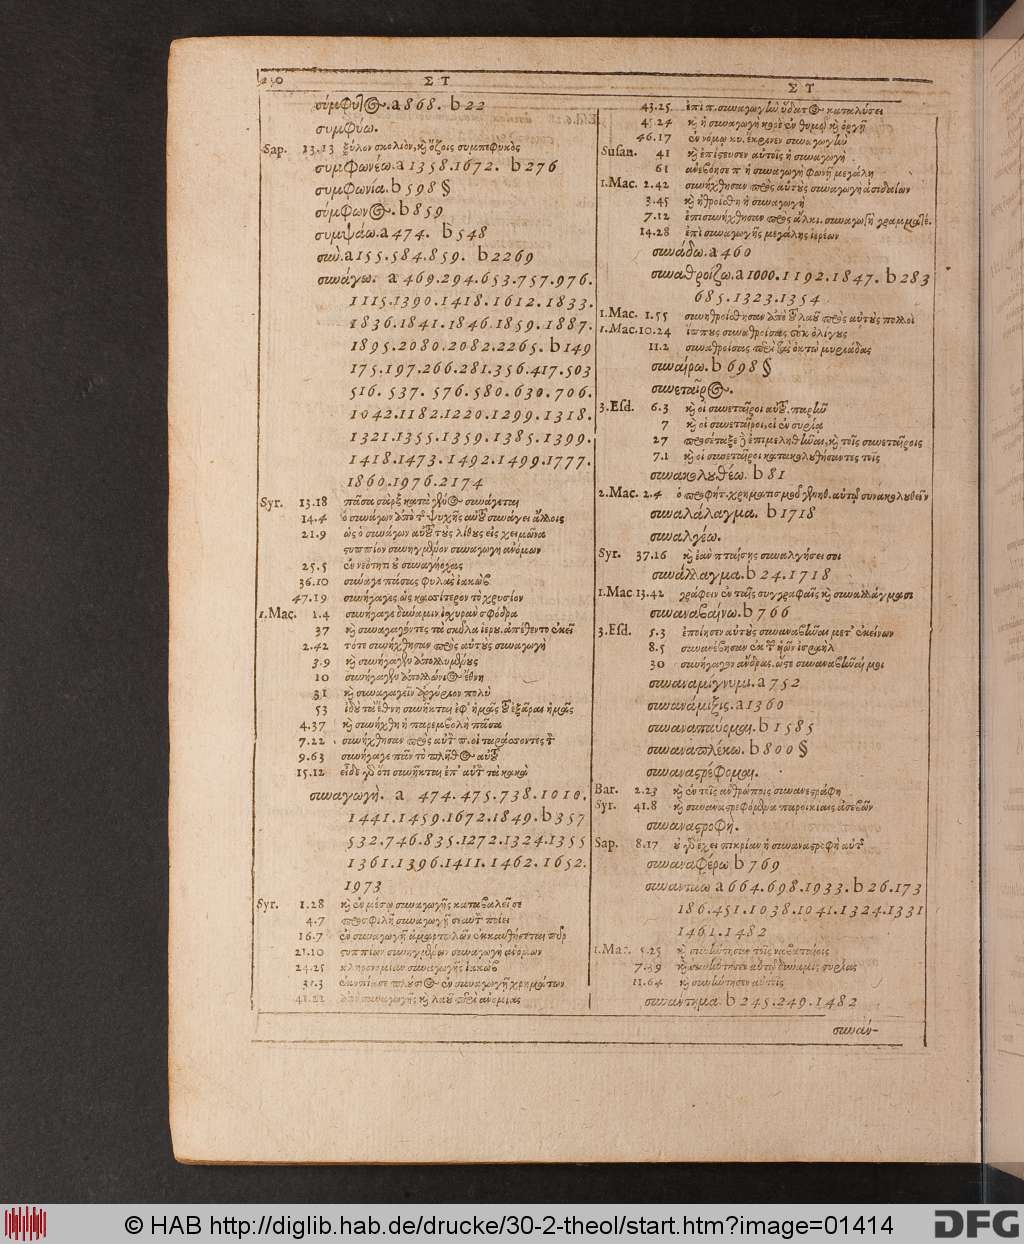 Σ Υ
Σ Υ
σύμφυτος. a 868. b 22
συμφύω.
Sap. 13.13 ξύλον σκολιὸν, καὶ ὄζοις συμπεφυκὸς
συμφωνέω. a 1358.1672. b 276
συμφωνία. b 598 §
σύμφωνος. b 859
συμψάω. a 474. b 548
σύν. a 155.584.859. b 2269
συνάγω. a 469.294.653.757.976.
1115.1390.1418.1612.1833.
1836.1841.1846.1859.1887.
1895.2080.2082.2265. b 149
175.197.266.281.356.417.503
516. 537. 576.580.630.706.
1042.1182.1220.1299.1318.
1321.1355.1359.1385.1399.
1418.1473.1492.1499.1777.
1860.1976.2174
Syr. 13.18 πᾶσα σὰρξ κατὰ γένος συνάγεται
14.4 ὁ συνάγων ἀπὸ τῆς ψυχῆς αὐτοῦ συνάγει ἄλλοις
21.9 ὡς ὁ συνάγων αὐτοῦ τοὺς λίθους εἰς χειμῶνα
στυππίον συνηγμένον συναγωγὴ ἀνόμων
25.5 ἐν νεότητι οὐ συναγήοχας
36.10 σύναγε πάσας φυλὰς ἰακὼβ
47.19 συνήγαγες ὡς κασσίτερον τὸ χρυσίον
1.Mac. 1.4 συνήγαγε δύναμιν ἰσχυρὰν σφόδρα
37 καὶ συναγαγόντες τὰ σκῦλα ἱερου. ἀπέθεντο ἐκεῖ
2.42 τότε συνήχθησαν πρὸς αὐτοὺς συναγωγὴ
3.9 καὶ συνήγαγεν ἀπολλυμένους
10 συνήγαγεν ἀπολλώνιος ἔθνη
31 καὶ συναγαγεῖν ἀργύριον πολὺ
53 ἰδοὺ τὰ ἔθνη συνῆκται ἐφ' ἡμᾶς τοῦ ἐξᾶραι ἡμᾶς
4.37 καὶ συνήχθη ἡ παρεμβολὴ πᾶσα
7.22 συνήχθησαν πρὸς αὐτὸν π. οἱ ταράσσοντες τὸν
9.63 συνήγαγε πᾶν τὸ πλῆθος αὐτοῦ
15.12 εἶδε γὰρ ὅτι συνῆκται ἐπ' αὐτὸν τὰ κακὰ
συναγωγὴ. a 474.475.738.1010.
1441.1459.1672.1849. b 357
532.746.835.1272.1324.1355
1361.1396.1411.1462.1652.
1973
Syr. 1.28 καὶ ἐν μέσῳ συναγωγῆς καταβαλεῖ σε
4.7 προσφιλῆ συναγωγῇ σεαυτὸν ποίει
16.7 ἐν συναγωγῇ ἁμαρτωλῶν ἐκκαυθήσεται πῦρ
21.10 στυππίον συνηγμένον συναγωγὴ ἀνόμων
24.25 κληρονομίαν συναγωγῆς ἰακὼβ
31.3 ἐκοπίασε πλούσιος ἐν συναγωγῇ χρημάτων
41.22 ἀπὸ συναγωγῆς καὶ λαοῦ περὶ ἀνομίας
43.25 ἐπὶ π. συναγωγὴν ὕδατος καταλύσει
45.24 καὶ ἡ συναγωγὴ κορὲ ἐν θυμῷ καὶ ὀργῇ
46.17 ἐν νόμῳ κυ. ἔκρινεν συναγωγὴν
Susan. 41 καὶ ἐπίστευσεν αὐτοῖς ἡ συναγωγὴ
61 ἀνεβόησε π. ἡ συναγωγὴ φωνῇ μεγάλῃ
1.Mac. 2.42 συνήχθησαν πρὸς αὐτοὺς συναγωγὴ ἀσιδαίων
3.45 καὶ ἠθροίσθη ἡ συναγωγὴ
7.12 ἐπισυνήχθησαν πρὸς ἄλκι. συναγωγὴ γραμματέ.
14.28 ἐπὶ συναγωγῆς μεγάλης ἱερέων
συνάδω. a 460
συναθροίζω. a 1000.1192.1847. b 283
685.1323.1354
1.Mac. 1.55 συνηθροίσθησαν ἀπὸ τοῦ λαοῦ πρὸς αὐτοὺς πολλοὶ
1.Mac. 10.24 ἵππους συναθροίσας οὐκ ὀλίγους
11.2 συναθροίσας περὶ τὰς ὀκτὼ μυριάδας
συναίρω. b 698 §
συνεταῖρος.
3.Esd. 6.3 καὶ οἱ συνεταῖροι αὐτοῦ. παρῆν
7 καὶ οἱ συνεταῖροι, οἱ ἐν συρίᾳ
27 προσέταξε δὲ ἐπιμεληθῆναι, καὶ τοῖς συνεταίροις
7.1 καὶ οἱ συνεταῖροι κατακολουθήσαντες τοῖς
συνακολουθέω. b 81
2.Mac. 2.4 ὁ προφήτ. χρηματισμοῦ γενηθ. αὐτῷ συνακολουθεῖν
συναλάλαγμα. b 1718
συναλγέω.
Syr. 37.16 καὶ ἐὰν πταίσῃς συναλγήσει σοι
συνάλλαγμα. b 24.1718
1.Mac 13.42 γράφειν ἐν ταῖς συγγραφαῖς καὶ συναλλάγμασι
συναναβαίνω. b 766
3.Esd. 5.3 ἐποίησεν αὐτοὺς συναναβῆναι μετ' ἐκείνων
8.5 συνανέβησαν ἐκ τῶν ἡῶν ἰσραὴλ
30 συνήγαγον ἄνδρας, ὥστε συναναβῆναί μοι
συναναμίγνυμι. a 752
συνανάμιξις. a 1360
συναναπαύομαι. b 1585
συναναπλέκω. b 800 §
συναναστρέφομαι.
Bar. 2.23 καὶ ἐν τοῖς ἀνθρώποις συνανεστράφη
Syr. 41.8 καὶ συναναστρεφόμενα παροικίαις ἀσεβῶν
συναναστροφὴ.
Sap. 8.17 οὐ γὰρ ἔχει πικρίαν ἡ συναναστροφὴ αὐτῆς
συναναφέρω b 769
συναντάω a 664.698.1933. b 26.173
186.451.1038.1041.1324.1331
1461.1482
1.Mac. 5.25 καὶ συνήντησε τοῖς ναβαταίοις
7.39 καὶ συνήντησεν αὐτῷ δύναμις συρίας
11.64 καὶ συνήντησεν αὐτοῖς
συνάντημα. b 245.249.1482
συναν-
© HAB http://diglib.hab.de/drucke/30-2-theol/start.htm?image=01414
DFG